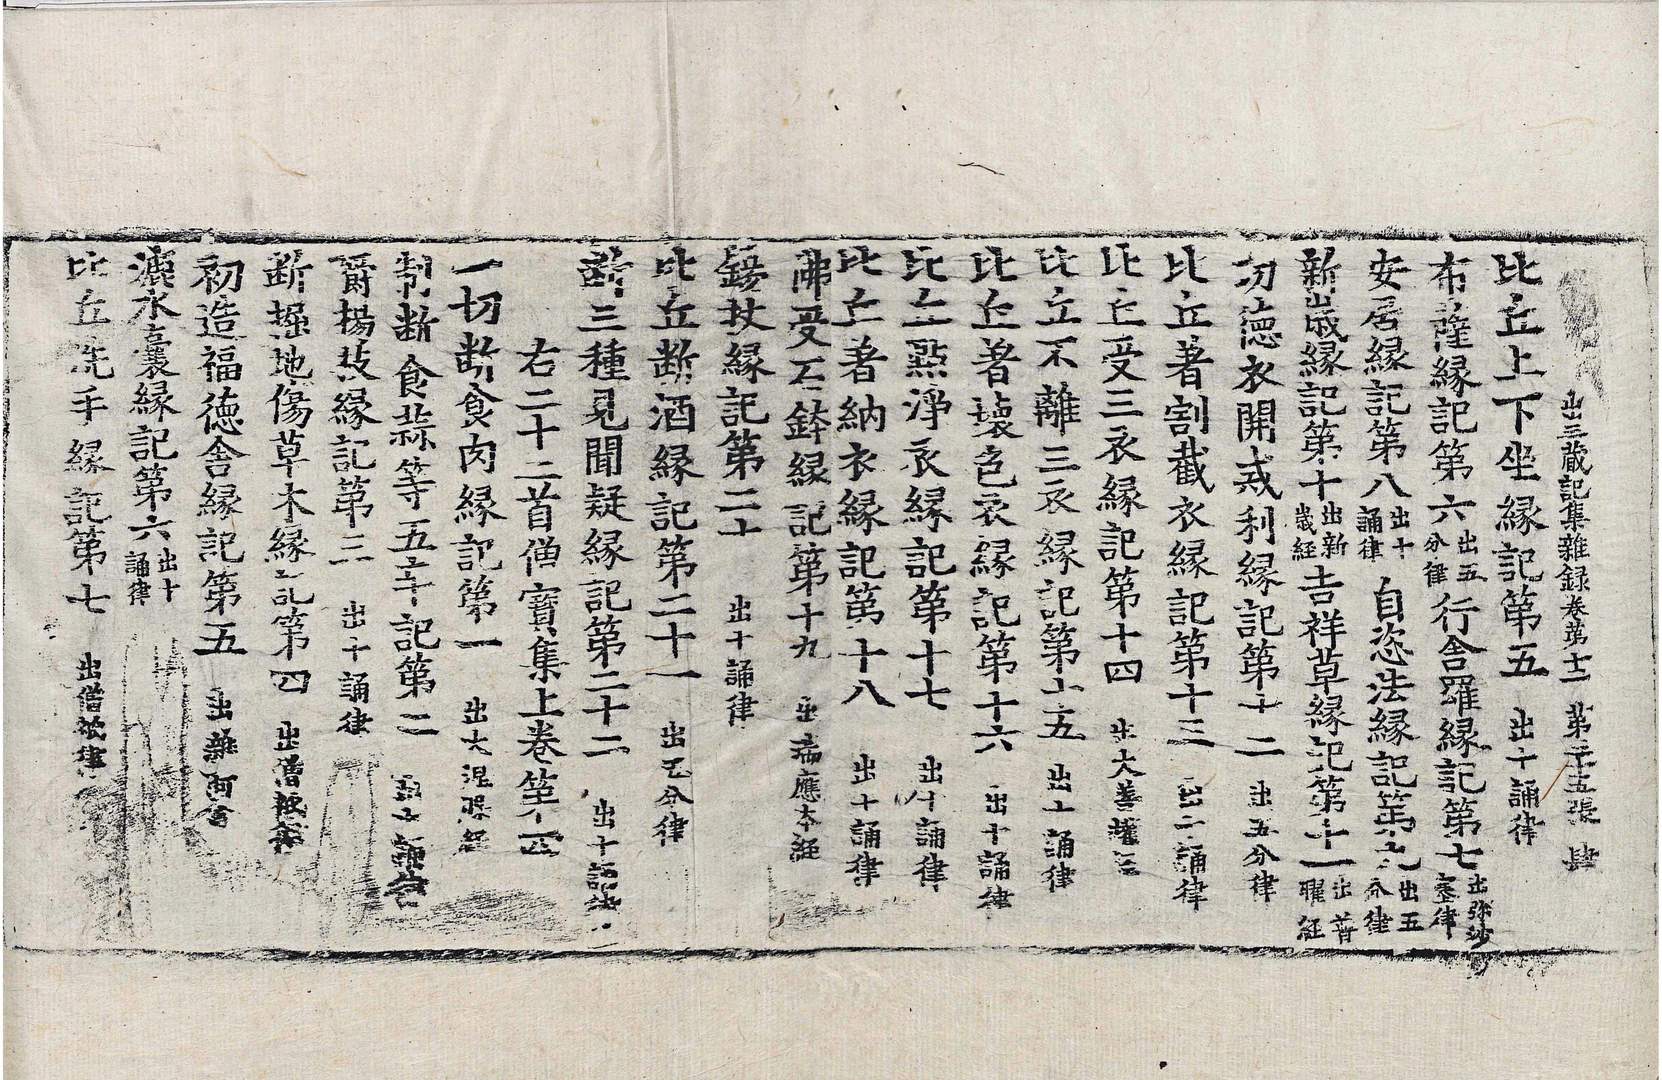 出三藏記集雜録卷第十二 第二十五張 肆
比丘上下坐縁記第五 出十誦律
布薩縁記第六 出五分律 行舍羅縁記第七 出弥沙塞律
安居縁記第八 出十誦律 自恣法縁記第九 出五分律
新歳縁記第十 出新歳経 吉祥草縁記第十一 出普曜経
功德衣開戒利縁記第十二 出五分律
比丘著割截衣縁記第十三 出十誦律
比丘受三衣縁記第十四 出大善權経
比丘不離三衣縁記第十五 出十誦律
比丘著壞色衣縁記第十六 出十誦律
比丘點淨衣縁記第十七 出十誦律
比丘著納衣縁記第十八 出十誦律
佛受石鉢縁記第十九 出瑞應本経
錫杖縁記第二十 出十誦律
比丘断酒縁記第二十一 出五分律
断三種見聞疑縁記第二十二 出十誦律
右二十二首僧寶集上卷第四
一切断食肉縁記第一 出大涅槃経
制断食蒜等五辛記第二 出十誦律
嚼楊枝縁記第三 出十誦律
断掘地傷草木縁記第四 出僧祇律
初造福德舍縁記第五 出雜阿含
漉水囊縁記第六 出十誦律
比丘洗手縁記第七 出僧祇律